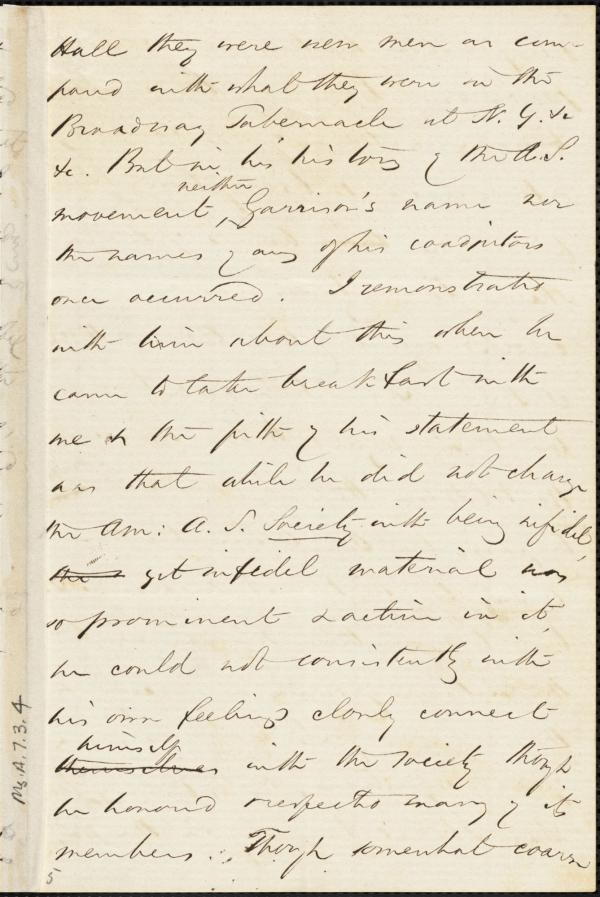 Hall they were new men as com-
pared with what they were in the
Broadway Tabernacle at N. Y. &c
&c. But in his history of the A. S.
neither
movement, Garrison's name nor
the names of any of his coadjutors
once occurred. I remonstrated
with him about this when he
came to take breakfast with
me & the pith of his statement
was that while he did not charge
the Am: A. S. Society with being infidel,
yet infidel material was
so prominent & active in it,
he could not consistently with
his own feelings closely connect
himself
themselves with the Society though
he honoured & respected many of its
members. Though somewhat coarse
5
Ms.A.7.3.4